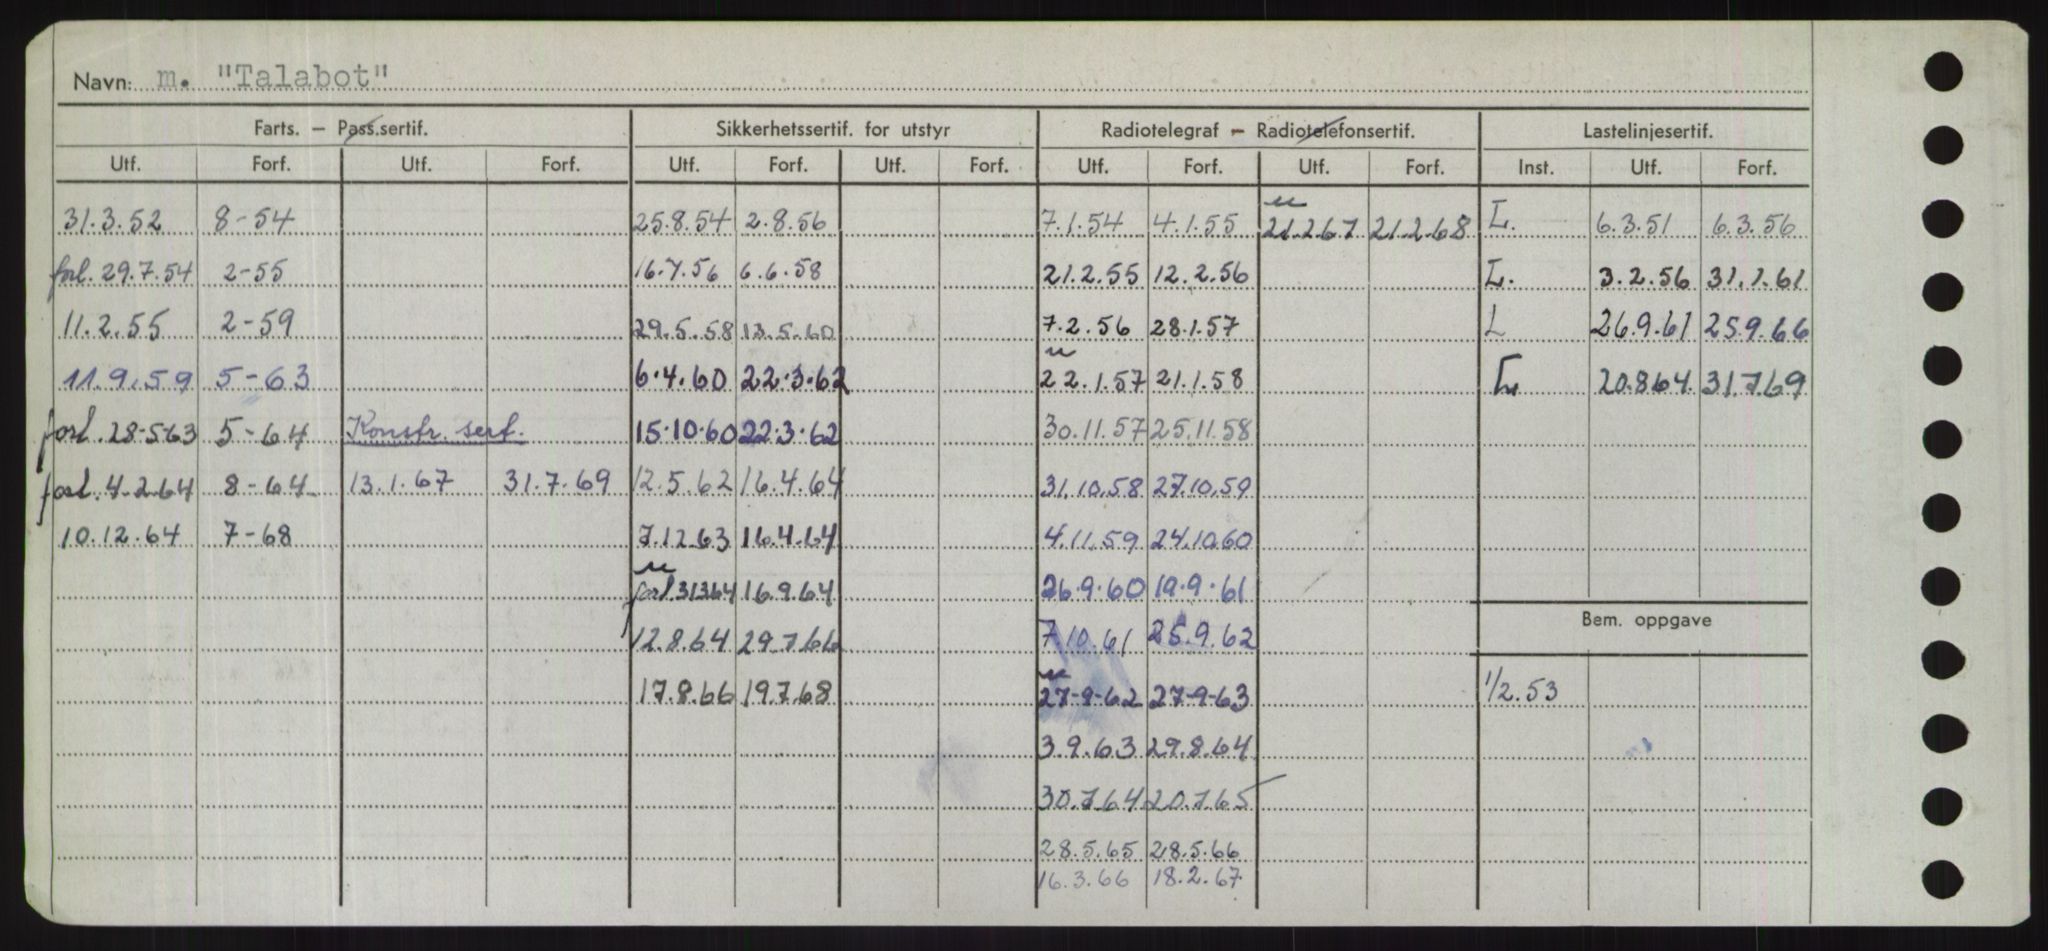 Navn: m. "Talabot"
Farts. – Pass.sertif. Sikkerhetssertif. for utstyr Radiotelegraf – Radiotelefonsertif. Lastelinjesertif.
Utf. Forf. Utf. Forf. Utf. Forf. Utf. Forf. Utf. Forf. Utf. Forf. Inst. Utf. Forf.
31.3.52 8-54 25.8.54 2.8.56 7.1.54 4.1.55 u 21.2.67 21.2.68 L. 6.3.51 6.3.56
forl. 29.7.54 2-55 16.7.56 6.6.58 21.2.55 12.2.56 L. 3.2.56 31.1.61
11.2.55 2-59 29.5.58 13.5.60 7.2.56 28.1.57 L 26.9.61 25.9.66
11.9.59 5-63 6.4.60 22.3.62 u 22.1.57 21.1.58 L 20.8.64 31.7.69
forl. 28-5-63 5-64 Konstr. sert. 15.10.60 22.3.62 30.11.57 25.11.58
forl. 4.2.64 8-64 13.1.67 31.7.69 12.5.62 16.4.64 31.10.58 27.10.59
10.12.64 7-68 7.12.63 16.4.64 4.11.59 24.10.60
u forl 31364 16.9.64 26.9.60 19.9.61
12.8.64 29.7.66 7.10.61 25.9.62 Bem. oppgave
17.8.66 19.7.68 u 27-9-62 27-9-63 1/2.53
3.9.63 29.8.64
30.7.64 20.7.65
28.5.65 28.5.66
16.3.66 18.2.67